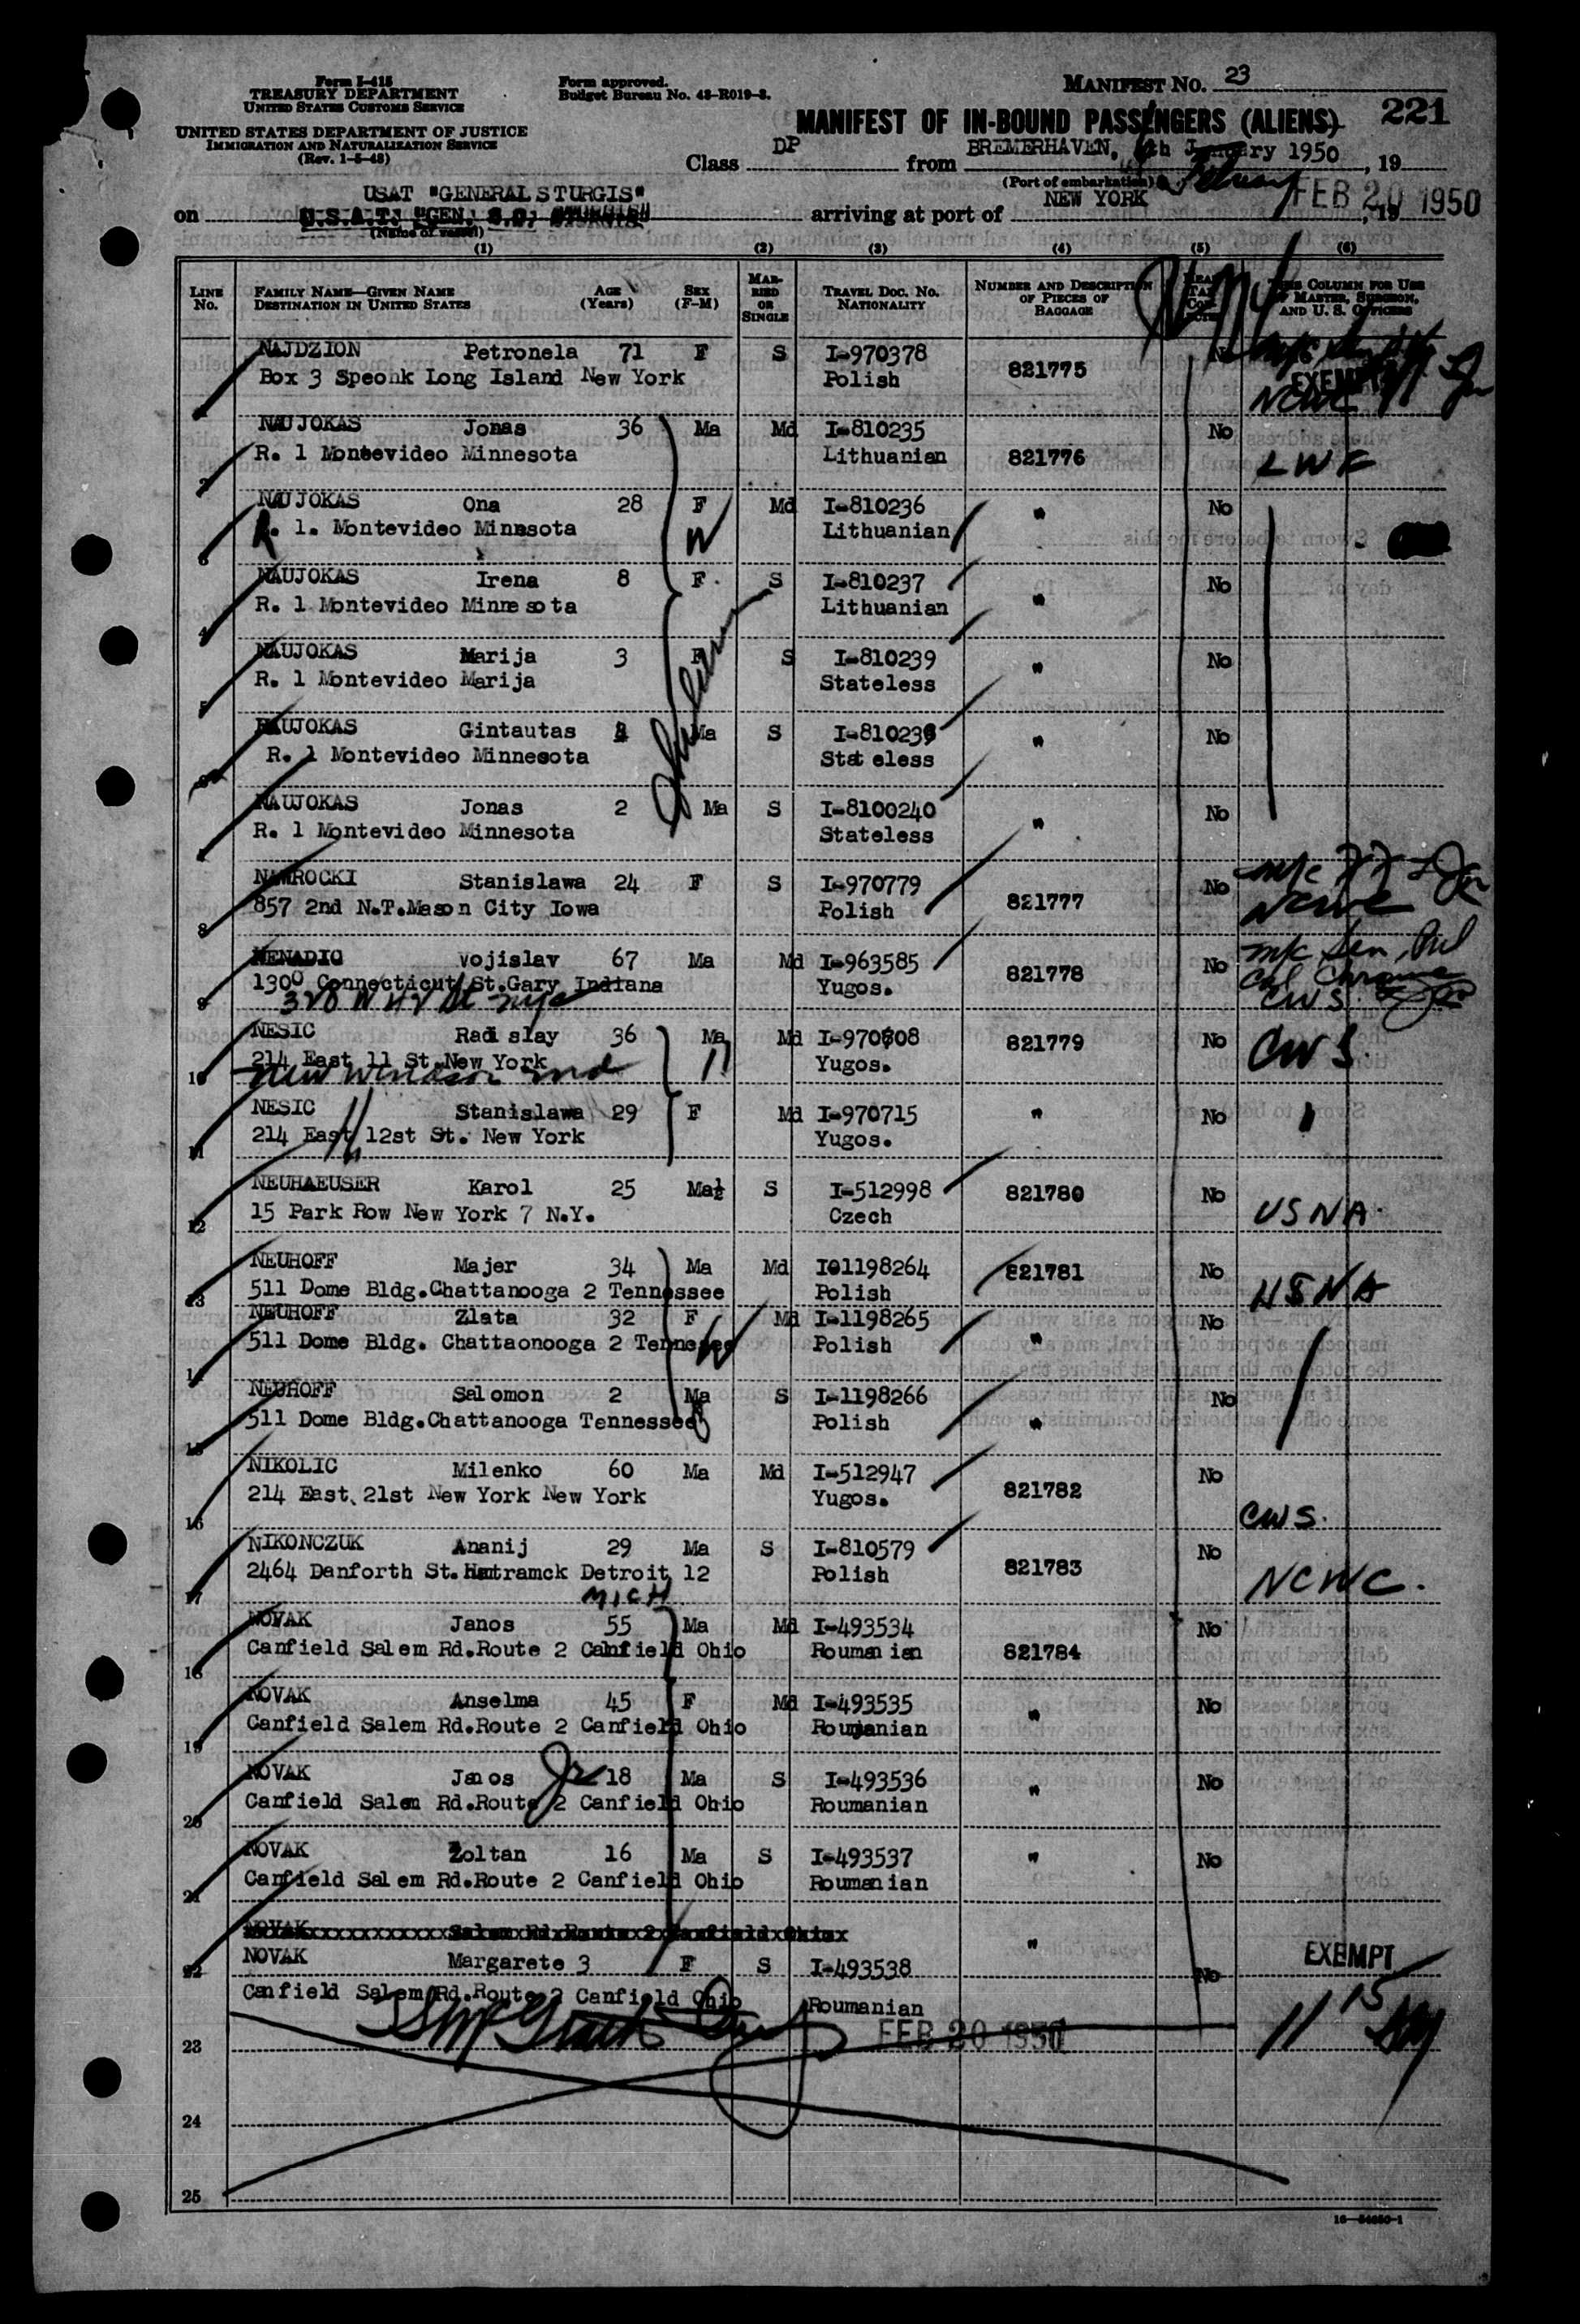 Form I-415
TREASURY DEPARTMENT
UNITED STATES CUSTOMS SERVICE
UNITED STATES DEPARTMENT OF JUSTICE
IMMIGRATION AND NATURALIZATION SERVICE
(Rev. 1-5-48)
Form approved.
Budget Bureau No. 43-R019-3.
MANIFEST NO. 23
221
MANIFEST OF IN-BOUND PASSENGERS (ALIENS)
Class DP from BREMERHAVEN, January 1950, 19
(Port of embarkation)
USAT "GENERAL STURGIS"
on U.S.A.T. "GEN. S.D. STURGIS" arriving at port of NEW YORK FEB 20 1950, 19
(Name of vessel)
(1) (2) (3) (4) (5) (6)
LINE No. FAMILY NAME—GIVEN NAME DESTINATION IN UNITED STATES AGE (Years) SEX (F-M) MARRIED OR SINGLE TRAVEL DOC. NO. NATIONALITY NUMBER AND DESCRIPTION OF PIECES OF BAGGAGE THIS COLUMN FOR USE OF MASTER, SURGEON, AND U. S. OFFICERS
NAJDZION Petronela 71 F S I-970378 821775 No EXEMPT
Box 3 Speonk Long Island New York Polish NCWC
NAUJOKAS Jonas 36 Ma Md I-810235 821776 No LWF
2 R. 1 Montevideo Minnesota Lithuanian
NAUJOKAS Ona 28 F Md I-810236 " No
3 R. 1. Montevideo Minnesota Lithuanian
NAUJOKAS Irena 8 F. S I-810237 " No
4 R. 1 Montevideo Minnesota Lithuanian
NAUJOKAS Marija 3 F S I-810239 " No
5 R. 1 Montevideo Marija Stateless
NAUJOKAS Gintautas Ma S I-810238 " No
6 R. 1 Montevideo Minnesota Stateless
NAUJOKAS Jonas 2 Ma S I-8100240 " No
7 R. 1 Montevideo Minnesota Stateless
NAWROCKI Stanislawa 24 F S I-970779 821777 No
8 857 2nd N.T.Mason City Iowa Polish NCWC
NENADIC Vojislav 67 Ma Md I-963585 821778 No
9 1300 Connecticut St.Gary Indiana Yugos. CWS
NESIC Radislay 36 Ma Md I-970808 821779 No CWS.
10 214 East 11 St.New York Yugos.
New Windsor Md
NESIC Stanislawa 29 F Md I-970715 " No "
11 214 East 12st St. New York Yugos.
NEUHAEUSER Karol 25 Ma S I-512998 821780 No USNA.
12 15 Park Row New York 7 N.Y. Czech
NEUHOFF Majer 34 Ma Md I01198264 821781 No USNA
13 511 Dome Bldg.Chattanooga 2 Tennessee Polish
NEUHOFF Zlata 32 F Md I-1198265 " No
14 511 Dome Bldg. Chattaonooga 2 Tennessee Polish
NEUHOFF Salomon 2 Ma S I-1198266 " No
15 511 Dome Bldg.Chattanooga Tennessee Polish
NIKOLIC Milenko 60 Ma Md I-512947 821782 No
16 214 East 21st New York New York Yugos. CWS.
NIKONCZUK Ananij 29 Ma S I-810579 821783 No NCWC.
17 2464 Danforth St.Hamtramck Detroit 12 Polish
MICH
NOVAK Janos 55 Ma Md I-493534 821784 No
18 Canfield Salem Rd.Route 2 Canfield Ohio Roumanian
NOVAK Anselma 45 F Md I-493535 " No
19 Canfield Salem Rd.Route 2 Canfield Ohio Roumanian
NOVAK Janos Jr 18 Ma S I-493536 " No
20 Canfield Salem Rd.Route 2 Canfield Ohio Roumanian
NOVAK Zoltan 16 Ma S I-493537 " No
21 Canfield Salem Rd.Route 2 Canfield Ohio Roumanian
NOVAK Salem Rd Route 2 Canfield Ohio "
22 NOVAK Margarete 3 F S I-493538 No EXEMPT
Canfield Salem Rd.Route 2 Canfield Ohio Roumanian
FEB 20 1950
23
24
25